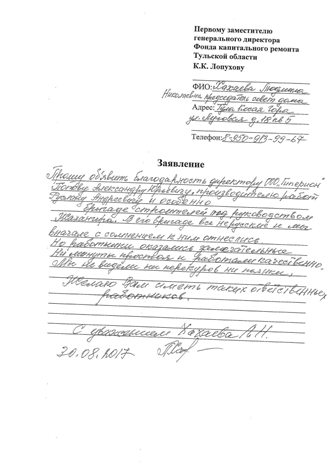 Первому заместителю
генерального директора
Фонда капитального ремонта
Тульской области
К.К. Лопухову
ФИО: Хахаева Людмила
Николаевна председатель совет дома
Адрес: Тула Косая Гора
ул. Луговая д. 18 кв 5
Телефон: 8-950-913-99-67
Заявление
Прошу объявить благодарность директору ООО „Гиперион"
Александру производителю работ
Андреевой и особенно
бригаде строителей под руководством
В его бригаде все нерусские и мы
вначале с сомнением к ним отнеслись
Но работники оказались замечательные
Ни минуты простоя и работали качественно.
Мы не видели ни перекуров ни пьянки.
Желаю Вам иметь таких ответственных
работников.
С уважением Хахаева Л.Н.
30.08.2017